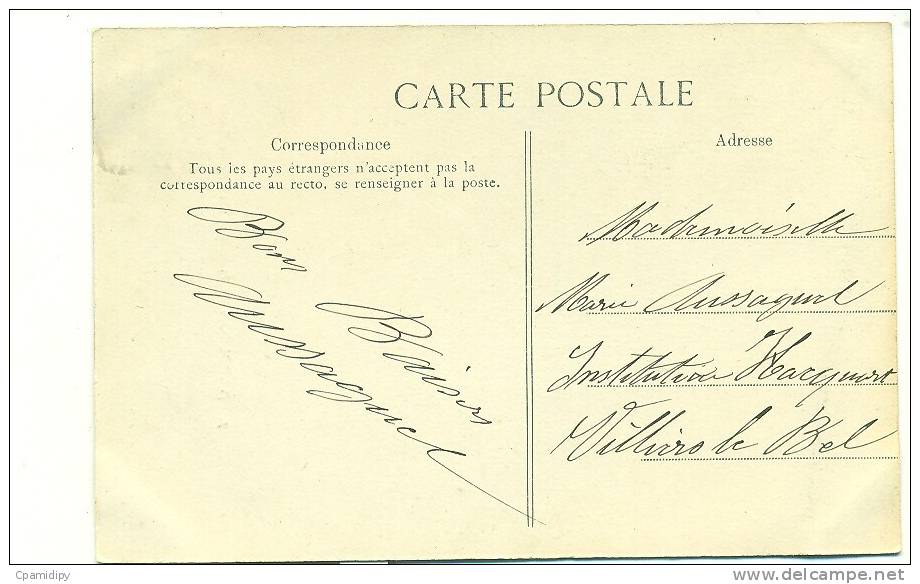 CARTE POSTALE
Correspondance
Tous les pays étrangers n'acceptent pas la
correspondance au recto, se renseigner à la poste.
Bons
Baisers
Aussaguel
Adresse
Mademoiselle
Marie Aussaguel
Institution Hacquart
Villiers le Bel
Cpamidipy
www.delcampe.net